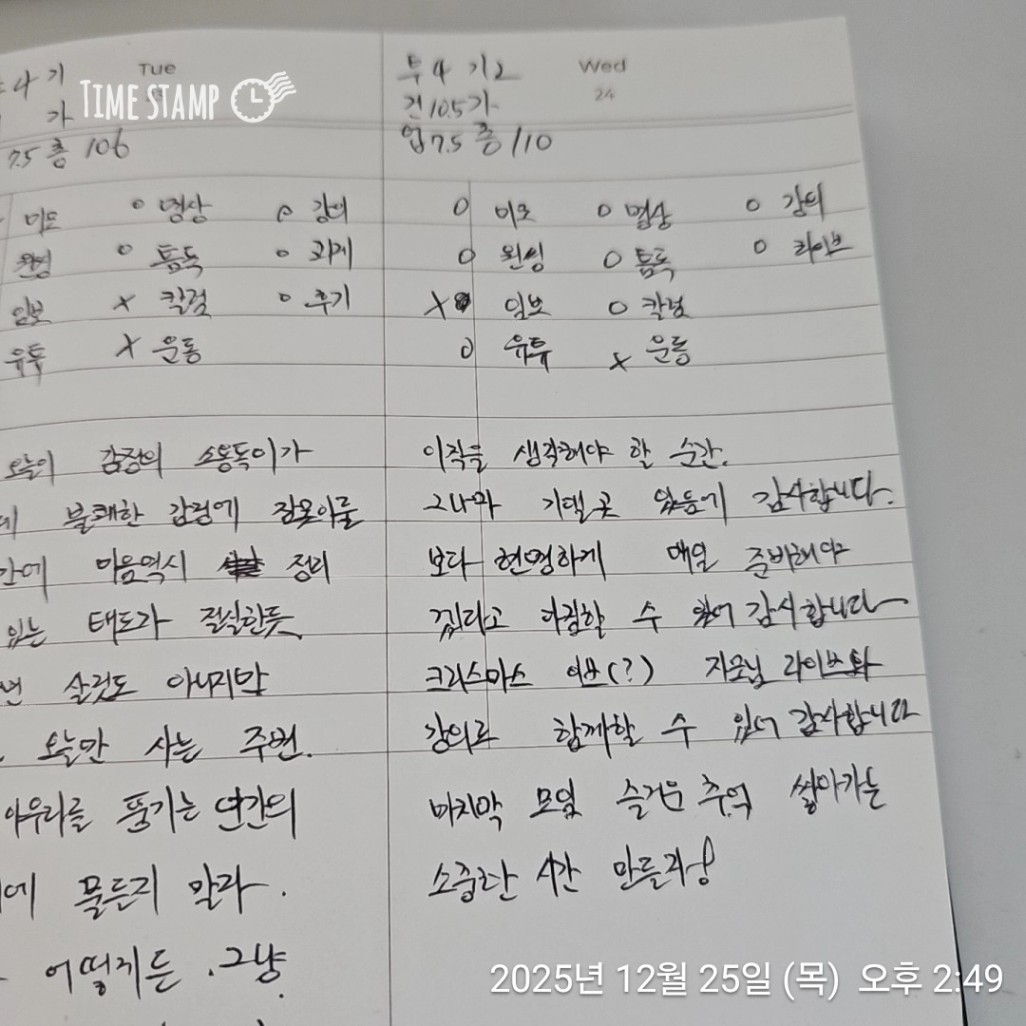 Tue
4 기
TIME STAMP
가
7.5 층 106
미모 o 명상 o 강의
원씽 o 틈독 o 과제
임보 x 칼럼 o 후기
유튜 x 운동
오늘의 감정의 소용돌이가
불쾌한 감정에 잠못이룰
간에 마음역시 정리
있는 태도가 절실한듯
살것도 아니지만
오늘만 사는 주변.
아우라를 풍기는 인간의
에 물든지 말라.
어떻게든 . 그냥.
투 4 기2 Wed
건 10.5 가 24
업 7.5 층 /110
o 미모 o 명상 o 강의
o 원씽 o 틈독 o 라이브
x 임보 o 칼럼
o 유튜 x 운동
이직을 생각해야 할 순간.
그나마 기댈 곳 있음에 감사합니다.
보다 현명하게 매일 준비해야
겠다고 다짐할 수 있어 감사합니다
크리스마스 이브(?) 자모님 라이브와
강의로 함께할 수 있어 감사합니다
마지막 모임 즐거운 추억 쌓아가는
소중한 시간 만들자!
2025년 12월 25일 (목) 오후 2:49